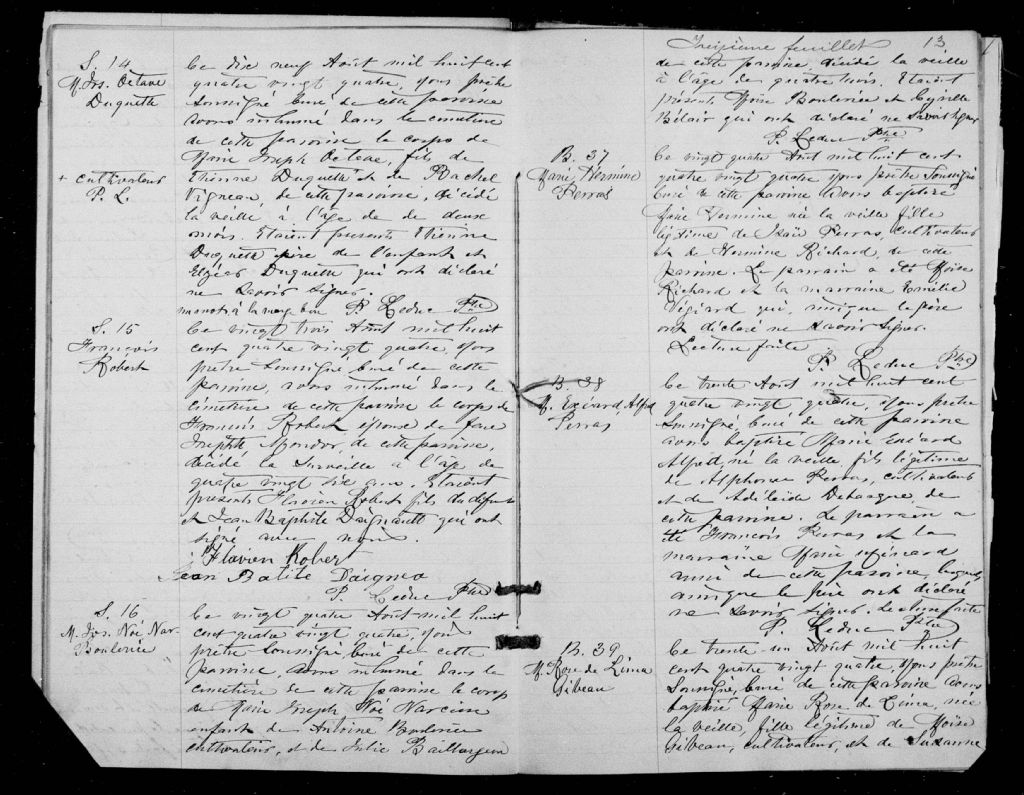 S. 14
M. Jos. Octave
Duquette
Ce dix neuf Août mil huit cent
quatre vingt quatre, nous prêtre
soussigné curé de cette paroisse
avons inhumé dans le cimetière
de cette paroisse le corps de
Marie Joseph Octave, fils de
+ cultivateur
P. L.
Etienne Duquette et de Rachel
Vigneau, de cette paroisse, décédé
la veille à l'âge de deux
mois. Etaient presents Etienne
Duquette père de l'enfant et
Elzéar Duquette qui ont déclaré
ne savoir signer.
P. Leduc Ptre
S. 15
François
Robert
Ce vingt trois Août mil huit
cent quatre vingt quatre, nous
prêtre soussigné, curé de cette
paroisse, avons inhumé dans le
cimetière de cette paroisse le corps de
François Robert époux de feue
Josephte Mondor, de cette paroisse,
décédé la surveille à l'âge de
quatre vingt six ans. Etaient
presents Flavien Robert fils du défunt
et Jean Baptiste Daignault qui ont
signé avec nous.
Flavien Rober
Jean Batite Daigneo
P. Leduc Ptre
S. 16
M. Jos. Noé Nar-
Boulerice
Ce vingt quatre Août mil huit
cent quatre vingt quatre, nous
prêtre soussigné curé de cette
paroisse, avons inhumé dans le
cimetière de cette paroisse le corps
de Marie Joseph Noé Narcisse
enfant de Antoine Boulerice
cultivateur, et de Julie Baillargeon
Treizième feuillet 13
de cette paroisse, décédé la veille
à l'âge de quatre mois. Etaient
présents Moïse Boulerice et Cyrille
Bélair qui ont déclaré ne savoir signer
P. Leduc Ptre
B. 37
Marie Hermine
Perras
Ce vingt quatre Août mil huit cent
quatre vingt quatre nous prêtre soussigné
curé de cette paroisse avons baptisé
Marie Hermine née la veille fille
légitime de Isaïe Perras, cultivateur
et de Hermine Richard, de cette
paroisse. Le parrain a été Moïse
Richard et la marraine Emélie
Végiard qui, ainsi que le père
ont déclaré ne savoir signer.
Lecture faite
P. Leduc Ptre
B. 38
M. Exéard Alfred
Perras
Ce trente Août mil huit cent
quatre vingt quatre, nous prêtre
soussigné, curé de cette paroisse
avons baptisé Marie Exéard
Alfred, né la veille fils légitime
de Alphonse Perras, cultivateur
et de Adélaïde de
cette paroisse. Le parrain a
été François Perras et la
marraine Marie
aussi de cette paroisse, lesquels
ainsi que le père ont déclaré
ne savoir signer. Lecture faite
P. Leduc Ptre
B. 39
M. Rose de Lima
Gibeau
Ce trente-un Août mil huit
cent quatre vingt quatre, nous prêtre
soussigné, curé de cette paroisse avons
baptisé Marie Rose de Lima, née
la veille fille légitime de Moïse
Gibeau, cultivateur, et de Suzanne